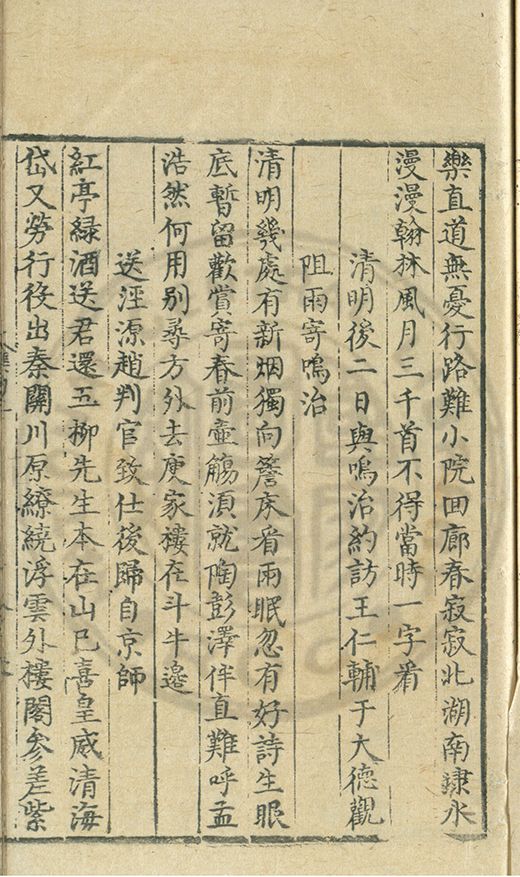 樂直道無憂行路難小院囬廊春寂寂北湖南埭水
漫漫翰林風月三千首不得當時一字看
清明後二日與鳴治約訪王仁輔于大德觀
阻雨寄鳴治
清明幾處有新烟獨向簷床看雨眠忽有好詩生眼
底暫留歡賞寄春前壺觴須就陶彭澤伴直難呼孟
浩然何用别尋方外去庾家樓在斗牛邊
送涇源趙判官致仕後歸自京師
紅亭緑酒送君還五柳先生本在山巳喜皇威清海
岱又勞行役出秦關川原繚繞浮雲外樓閣參差紫